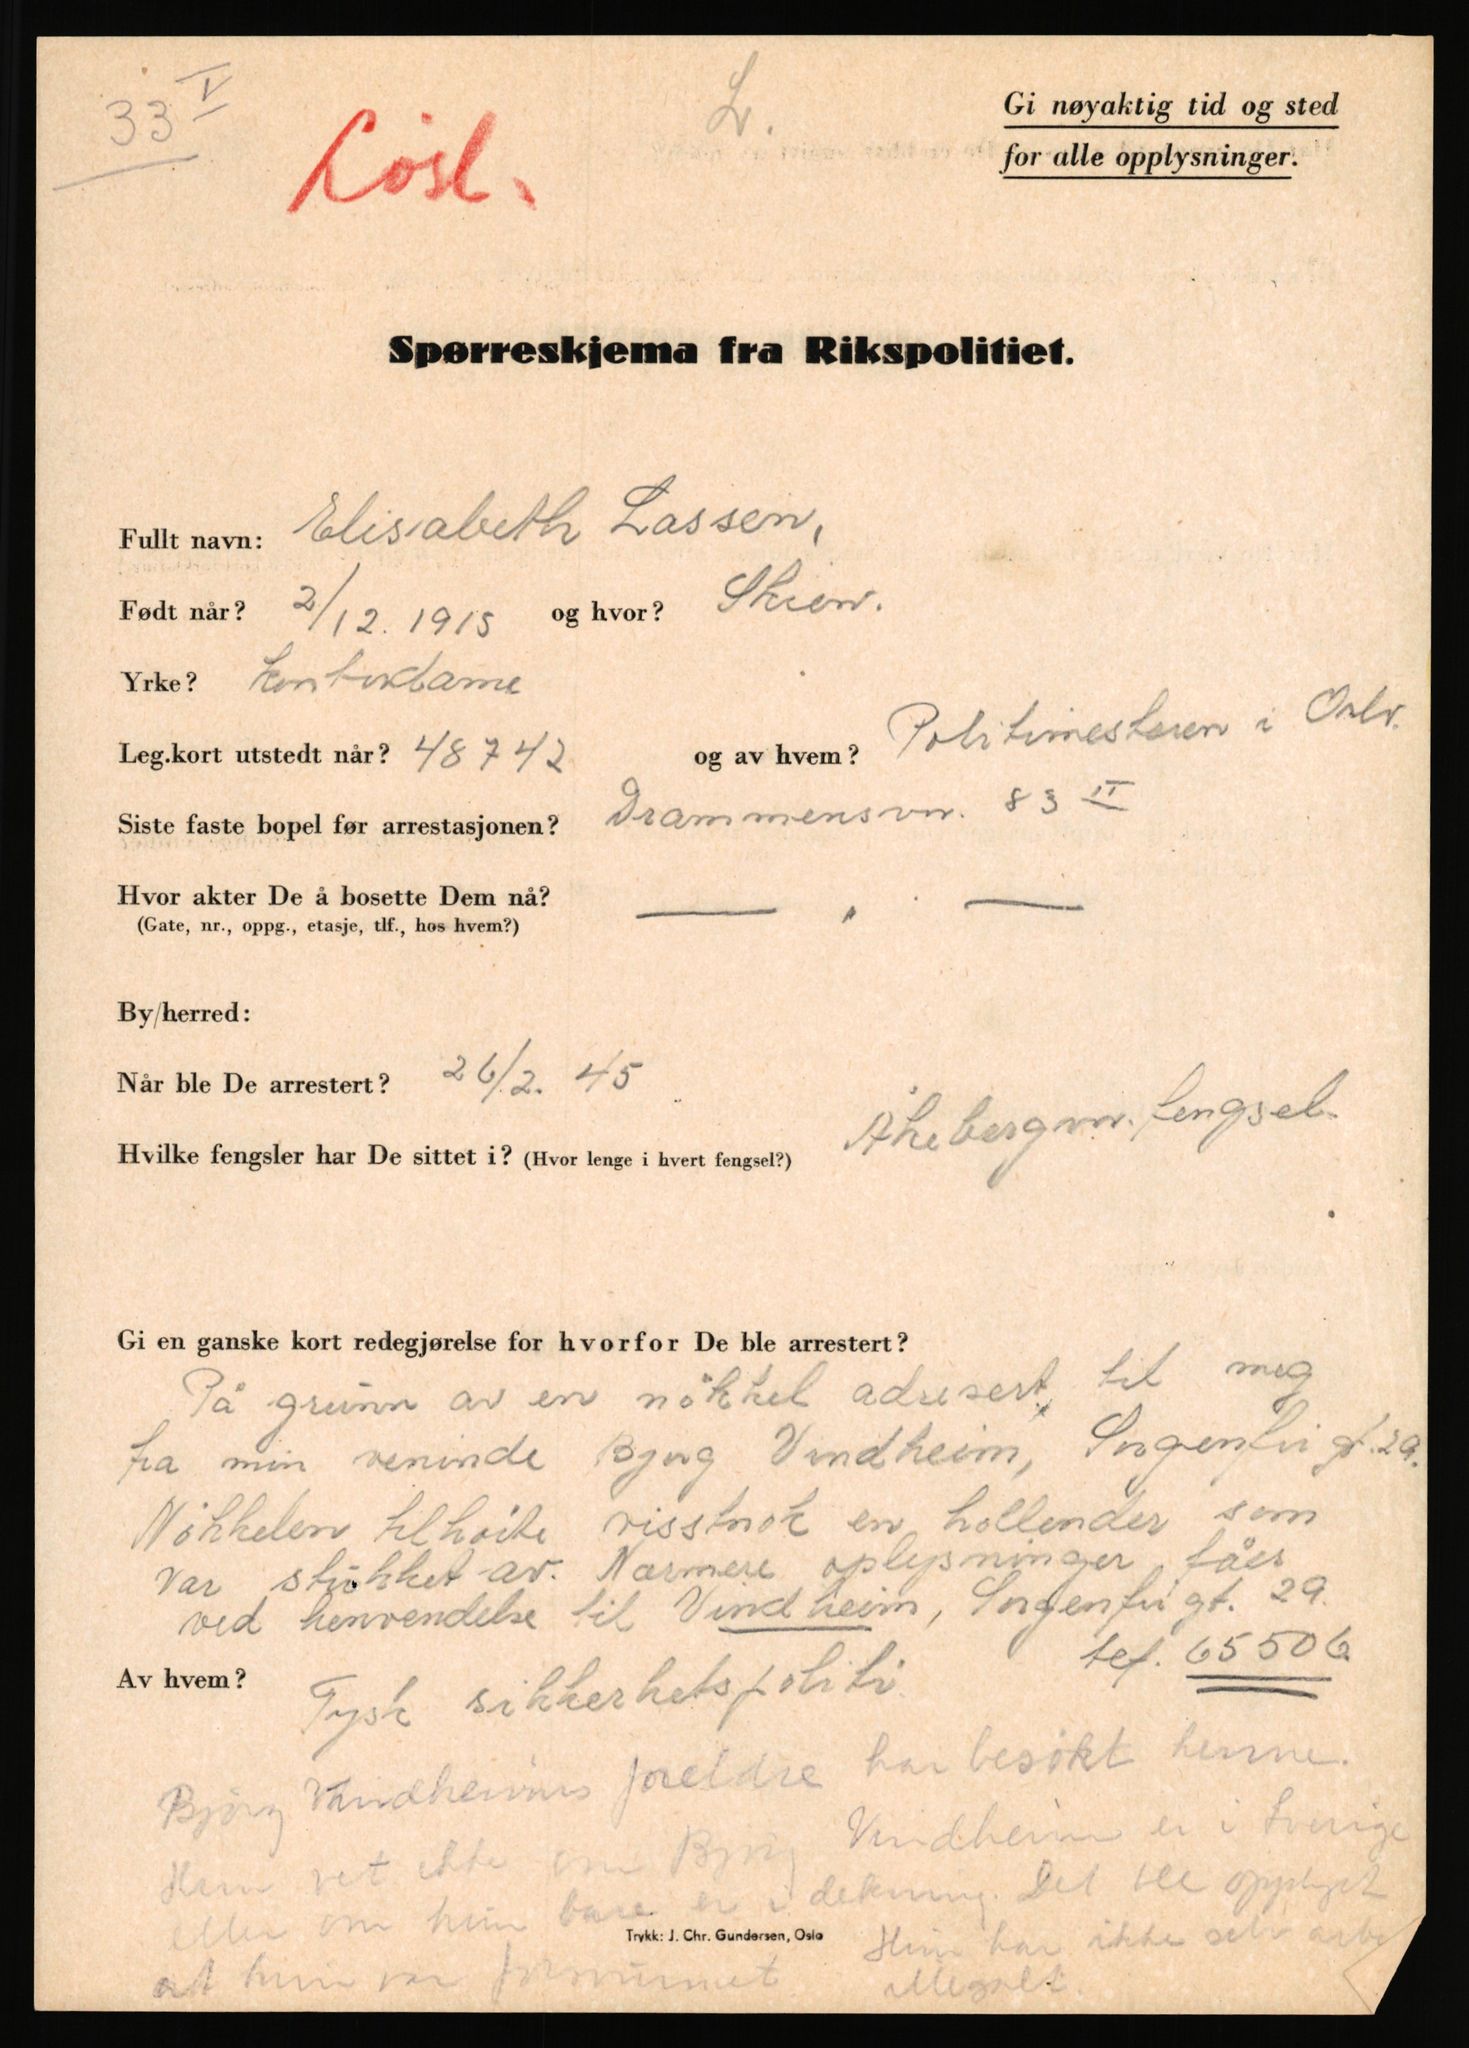 33 V
Løsl.
L.
Gi nøyaktig tid og sted
for alle opplysninger.
Spørreskjema fra Rikspolitiet.
Fullt navn: Elisabeth Lassen,
Født når? 2/12. 1915 og hvor? Skien.
Yrke? Kontordame
Leg.kort utstedt når? 48742 og av hvem? Politimesteren i Oslo.
Siste faste bopel før arrestasjonen? Drammensvn. 83 II
Hvor akter De å bosette Dem nå? — „ —
(Gate, nr., oppg., etasje, tlf., hos hvem?)
By/herred:
Når ble De arrestert? 26/2. 45
Hvilke fengsler har De sittet i? (Hvor lenge i hvert fengsel?) Åkebergvn. fengsel.
Gi en ganske kort redegjørelse for hvorfor De ble arrestert?
På grunn av en nökkel adresert til meg
fra min veninde Bjørg Vindheim, Sorgenfri gt. 29.
Nökkelen tilhörte visstnok en hollender som
var stukket av. Nærmere oplysninger fåes
ved henvendelse til Vindheim, Sorgenfrigt. 29.
tef. 65506
Av hvem? Tysk sikkerhetspoliti.
Björg Vindheims foreldre har besökt henne.
Hun vet ikke om Björg Vindheim er i Sverige
eller om hun bare er i dekning. Det ble opplyst
at hun var forsvunnet. Hun har ikke selv arbe
illegalt.
Trykk: J. Chr. Gundersen, Oslo